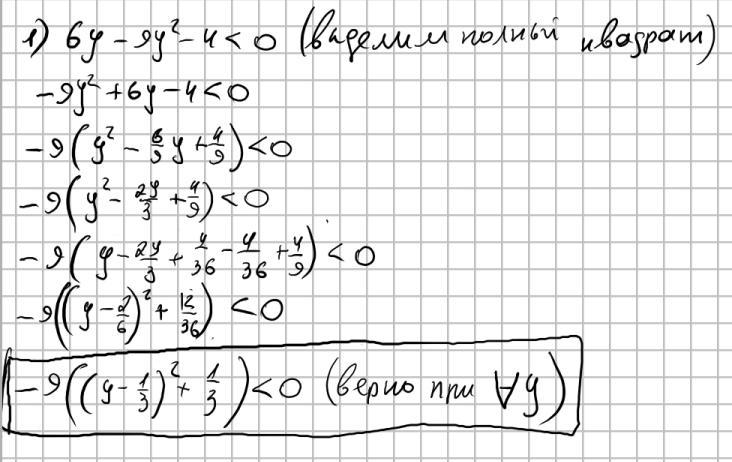 1) 6y - 9y² - 4 < 0 (выделим полный квадрат)
-9y² + 6y - 4 < 0
-9(y² - 6/9 y + 4/9) < 0
-9(y² - 2y/3 + 4/9) < 0
-9(y - 2y/3 + 4/36 - 4/36 + 4/9) < 0
-9((y - 2/6)² + 12/36) < 0
-9((y - 1/3)² + 1/3) < 0 (верно при ∀y)